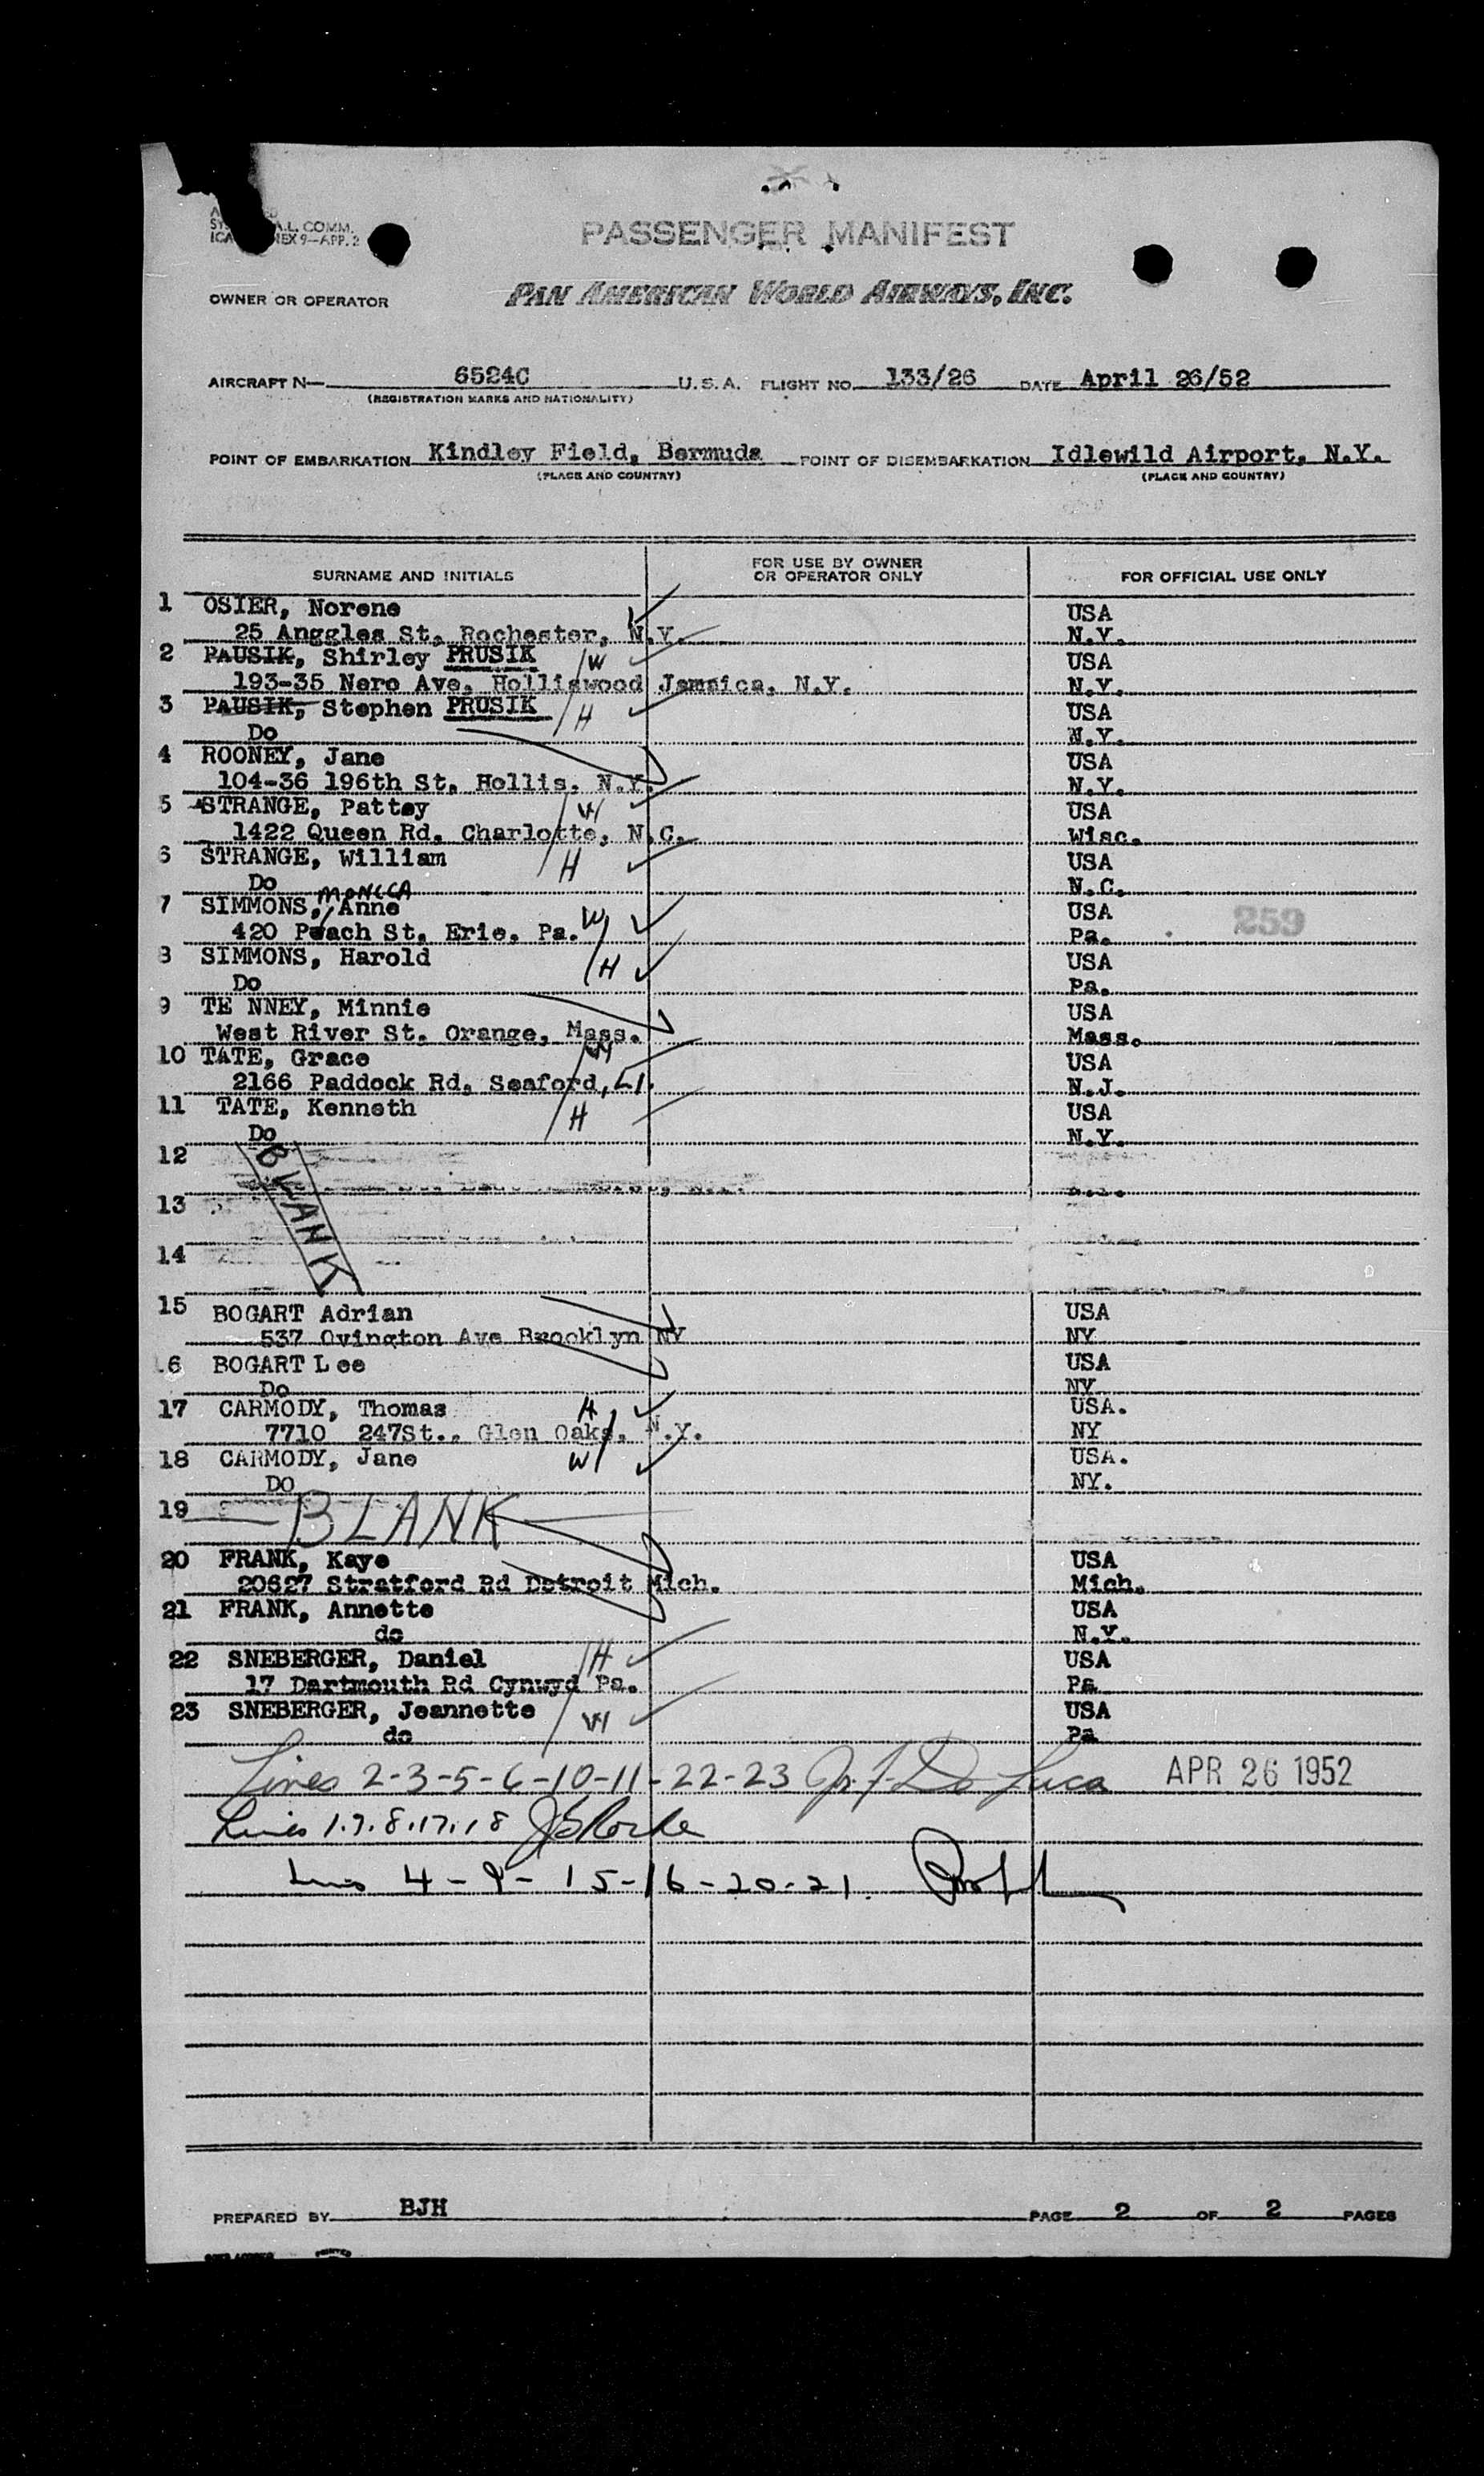 A.L. COMM.
ICA NEX 9—APP. 2
PASSENGER MANIFEST
OWNER OR OPERATOR PAN AMERICAN WORLD AIRWAYS, INC.
AIRCRAFT N— 6524C U.S.A. FLIGHT NO. 133/26 DATE April 26/52
(REGISTRATION MARKS AND NATIONALITY)
POINT OF EMBARKATION Kindley Field, Bermuda POINT OF DISEMBARKATION Idlewild Airport, N.Y.
(PLACE AND COUNTRY) (PLACE AND COUNTRY)
SURNAME AND INITIALS FOR USE BY OWNER OR OPERATOR ONLY FOR OFFICIAL USE ONLY
1 OSIER, Norene USA
25 Anggles St, Rochester, N.Y. N.Y.
2 PAUSIK, Shirley PRUSIK W USA
193-35 Nero Ave, Holliswood Jamaica, N.Y. N.Y.
3 PAUSIK, Stephen PRUSIK H USA
Do N.Y.
4 ROONEY, Jane USA
104-36 196th St, Hollis, N.Y. N.Y.
5 STRANGE, Pattey W USA
1422 Queen Rd, Charlotte, N.C. Wisc.
6 STRANGE, William H USA
Do N.C.
7 SIMMONS, MONICA Anne W USA
420 Peach St, Erie, Pa. Pa. 259
8 SIMMONS, Harold H USA
Do Pa.
9 TE NNEY, Minnie USA
West River St. Orange, Mass. Mass.
10 TATE, Grace W USA
2166 Paddock Rd, Seaford, L.I. N.J.
11 TATE, Kenneth H USA
Do N.Y.
12 BLANK
13
14
15 BOGART Adrian USA
537 Ovington Ave Brooklyn NY NY
16 BOGART Lee USA
Do NY
17 CARMODY, Thomas H USA.
7710 247St., Glen Oaks, N.Y. NY
18 CARMODY, Jane W USA.
DO NY.
19 BLANK
20 FRANK, Kaye USA
20627 Stratford Rd Detroit Mich. Mich.
21 FRANK, Annette USA
do N.Y.
22 SNEBERGER, Daniel H USA
17 Dartmouth Rd Cynwyd Pa. Pa
23 SNEBERGER, Jeannette W USA
do Pa
Lines 2-3-5-6-10-11-22-23 De Luca APR 26 1952
Lines 1.7.8.17.18
Lines 4-9-15-16-20-21.
PREPARED BY BJH PAGE 2 OF 2 PAGES